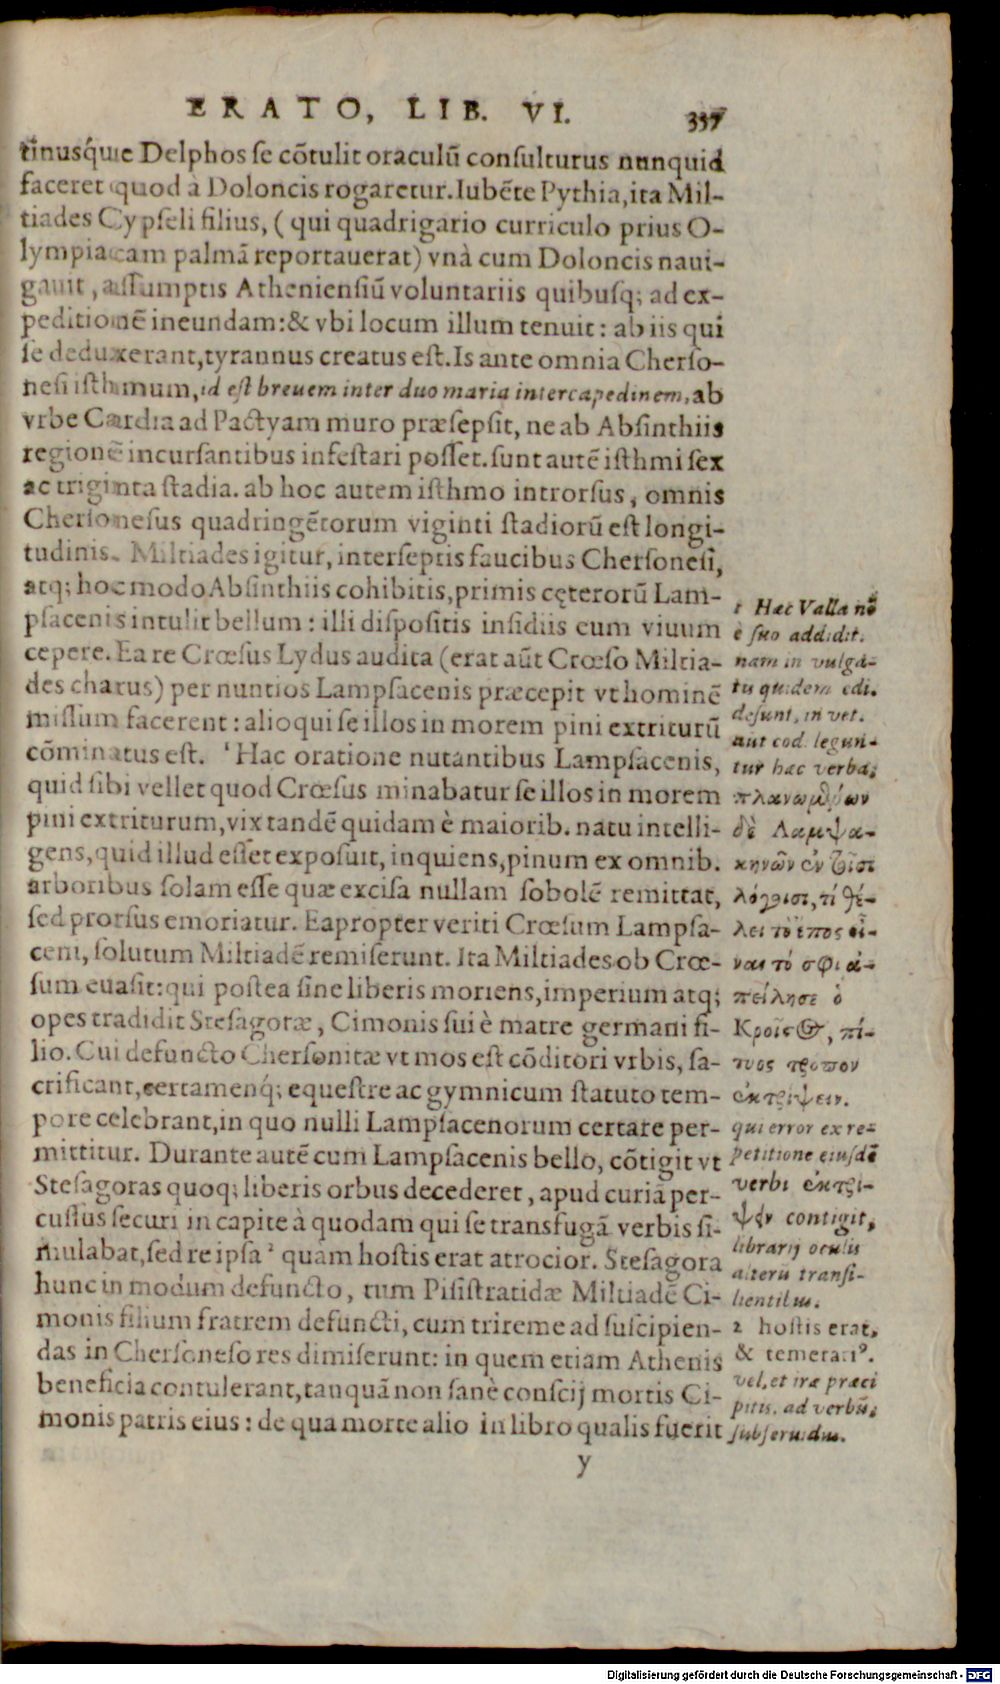 ERATO, LIB. VI. 337
tinusq́ue Delphos se cōtulit oraculū consulturus nunquid
faceret quod à Doloncis rogaretur. Iubēte Pythia, ita Mil-
tiades Cypseli filius, ( qui quadrigario curriculo prius O-
lympiacam palmā reportauerat) vnà cum Doloncis naui-
gauit, assumptis Atheniensiū voluntariis quibusq; ad ex-
peditionē ineundam: & vbi locum illum tenuit: ab iis qui
se deduxerant, tyrannus creatus est. Is ante omnia Cherso-
nesi isthmum, id est breuem inter duo maria intercapedinem, ab
vrbe Cardia ad Pactyam muro præsepsit, ne ab Absinthiis
regionē incursantibus infestari posset. sunt autē isthmi sex
ac triginta stadia. ab hoc autem isthmo introrsus, omnis
Chersonesus quadringētorum viginti stadiorū est longi-
tudinis. Miltiades igitur, interseptis faucibus Chersonesi,
atq; hoc modo Absinthiis cohibitis, primis cęterorū Lam-
psacenis intulit bellum: illi dispositis insidiis eum viuum
cepere. Ea re Crœsus Lydus audita (erat aūt Crœso Miltia-
des charus) per nuntios Lampsacenis præcepit vt hominē
missum facerent: alioqui se illos in morem pini extriturū
cōminatus est. ¹ Hac oratione nutantibus Lampsacenis,
quid sibi vellet quod Crœsus minabatur se illos in morem
pini extriturum, vix tandē quidam è maiorib. natu intelli-
gens, quid illud esset exposuit, inquiens, pinum ex omnib.
arboribus solam esse quæ excisa nullam sobolē remittat,
sed prorsus emoriatur. Eapropter veriti Crœsum Lampsa-
ceni, solutum Miltiadē remiserunt. Ita Miltiades ob Crœ-
sum euasit: qui postea sine liberis moriens, imperium atq;
opes tradidit Stesagoræ, Cimonis sui è matre germani fi-
lio. Cui defuncto Chersonitæ vt mos est cōditori vrbis, sa-
crificant, certamenq́; equestre ac gymnicum statuto tem-
pore celebrant, in quo nulli Lampsacenorum certare per-
mittitur. Durante autē cum Lampsacenis bello, cōtigit vt
Stesagoras quoq; liberis orbus decederet, apud curiā per-
cussus securi in capite à quodam qui se transfugā verbis si-
mulabat, sed re ipsa ² quàm hostis erat atrocior. Stesagora
hunc in modum defuncto, tum Pisistratidæ Miltiadē Ci-
monis filium fratrem defuncti, cum trireme ad suscipien-
das in Chersoneso res dimiserunt: in quem etiam Athenis
beneficia contulerant, tanquā non sanè conscij mortis Ci-
monis patris eius: de qua morte alio in libro qualis fuerit
y
1 Hæc Valla nō
è suo addidit.
nam in vulga-
tu quidem edi.
desunt, in vet.
aut cod. legun-
tur hæc verba;
πλανωμένων
δὲ Λαμψα-
κηνῶν ἐν τοῖσι
λόγοισι, τί θέ-
λει τὸ ἔπος εἶ-
ναι τό σφι ἀ-
πείλησε ὁ
Κροῖσος, πί-
τυος τρόπον
ἐκτρίψειν.
qui error ex re-
petitione eiusdē
verbi ἐκτρί-
ψειν contigit,
librarij oculis
alterū transi-
lientibus.
2 hostis erat,
& temerari⁹.
vel, et iræ præci
pitis. ad verbū;
subferuidus.
Digitalisierung gefördert durch die Deutsche Forschungsgemeinschaft - DFG